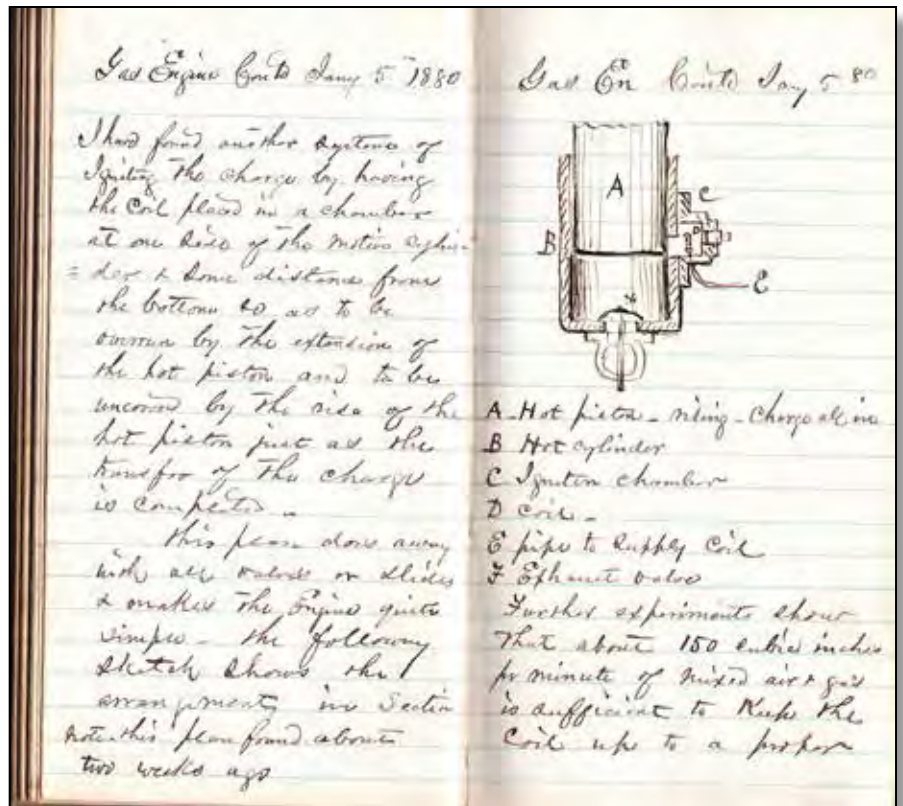 Gas Engine Contd Jany 5th 1880
I have found another system of
Igniting the charge by having
the coil placed in a chamber
at one side of the motive cylin
= der & some distance from
the bottom so as to be
overrun by the extension of
the hot piston and to be
uncovered by the rise of the
hot piston just as the
transfer of the charge
is competed -
This plan does away
with all valves or slides
& makes the Engine quite
simple - the following
sketch shows the
arrangement in Section
note this plan found about
two weeks ago
Gas En Contd Jany 5 80
A
B
C
E
A - Hot piston - rising - charge all in
B Hot cylinder
C Ignition chamber
D coil -
E pipe to supply coil
F Exhaust valve
Further experiments show
that about 150 cubic inches
pr minute of mixed air & gas
is sufficient to Keep the
Coil up to a proper